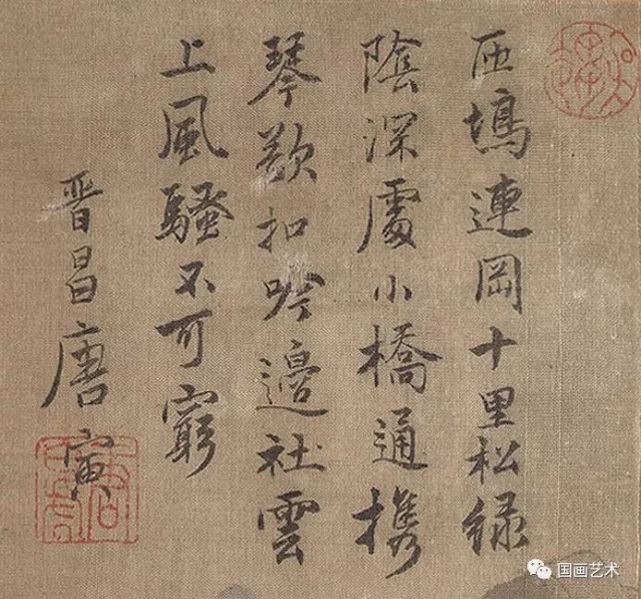 西塢連岡十里松緑
陰深處小橋通携
琴欵扣吟邊社雲
上風騷不可窮
晋昌唐寅
国画艺术